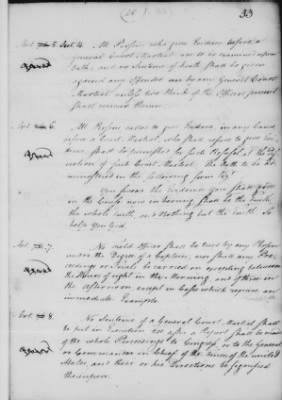 33
Art. 5. Sect. 4. All Persons who give Evidence before a
general Court Martial are to be examined upon
Oath; and no Sentence of Death shall be given
against any Offender by any General Court
Martial unless two thirds of the Officers present
shall concur therein.
Art. 6. All Persons called to give Evidence in any Cause
before a Court Martial, who shall refuse to give Evi
dence, shall be punished for such Refusal at the Dis
cretion of such Court Martial. The Oath to be Ad
ministered in the following form
You swear the Evidence you shall give
in the Cause now in hearing shall be the truth,
the whole truth, and nothing but the truth. So
help you God.
Art. 7. No Field Officer shall be tried by any Person
under the Degree of a Captain; nor shall any Pro
ceedings or Trials be carried on excepting between
the Hours of eight in the Morning and of three in
the Afternoon, except in Cases which require an
immediate Example.
Art. 8. No Sentence of a General Court Martial shall be
put in Execution till after a Report shall be made
of the whole Proceedings to Congress, or to the General
or Commander in Chief of the forces of the united
States, and their or his Directions be signified
thereupon.